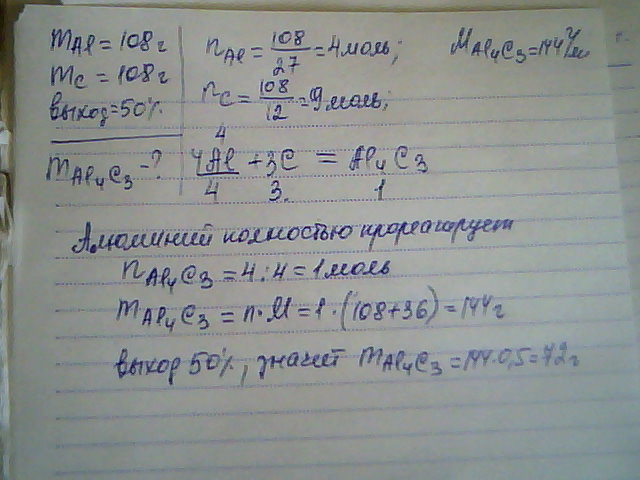 mAl = 108г
mC = 108г
выход = 50%
mAl₄C₃ - ?
nAl = 108/27 = 4 моль;
MAl₄C₃ = 144 г/моль
nC = 108/12 = 9 моль;
4
4Al + 3C = Al₄C₃
4 3. 1
Алюминий полностью прореагирует
nAl₄C₃ = 4 : 4 = 1 моль
mAl₄C₃ = n · M = 1 · (108+36) = 144 г
выход 50%, значит mAl₄C₃ = 144 · 0,5 = 72 г